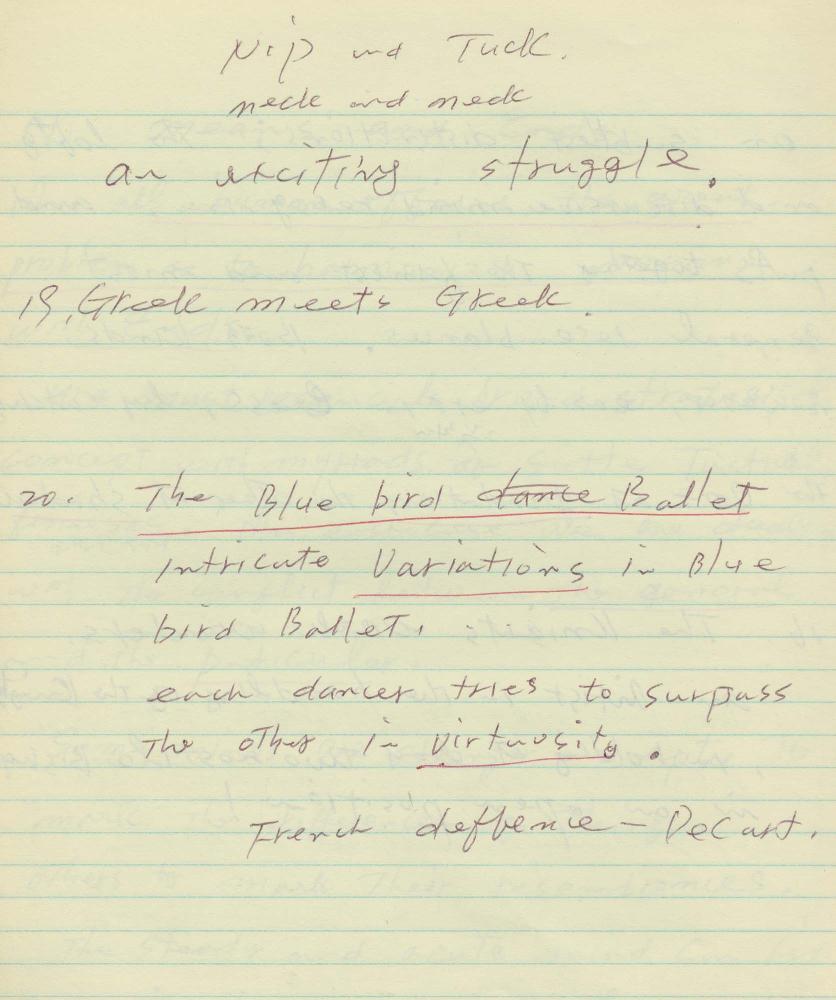 Nip and Tuck.
neck and neck
an exciting struggle.
19. Greek meets Greek.
20. The Blue bird dance Ballet
intricate Variations in Blue
bird Ballet.
each dancer tries to surpass
The other in virtuosity.
French deffence – DeCart.